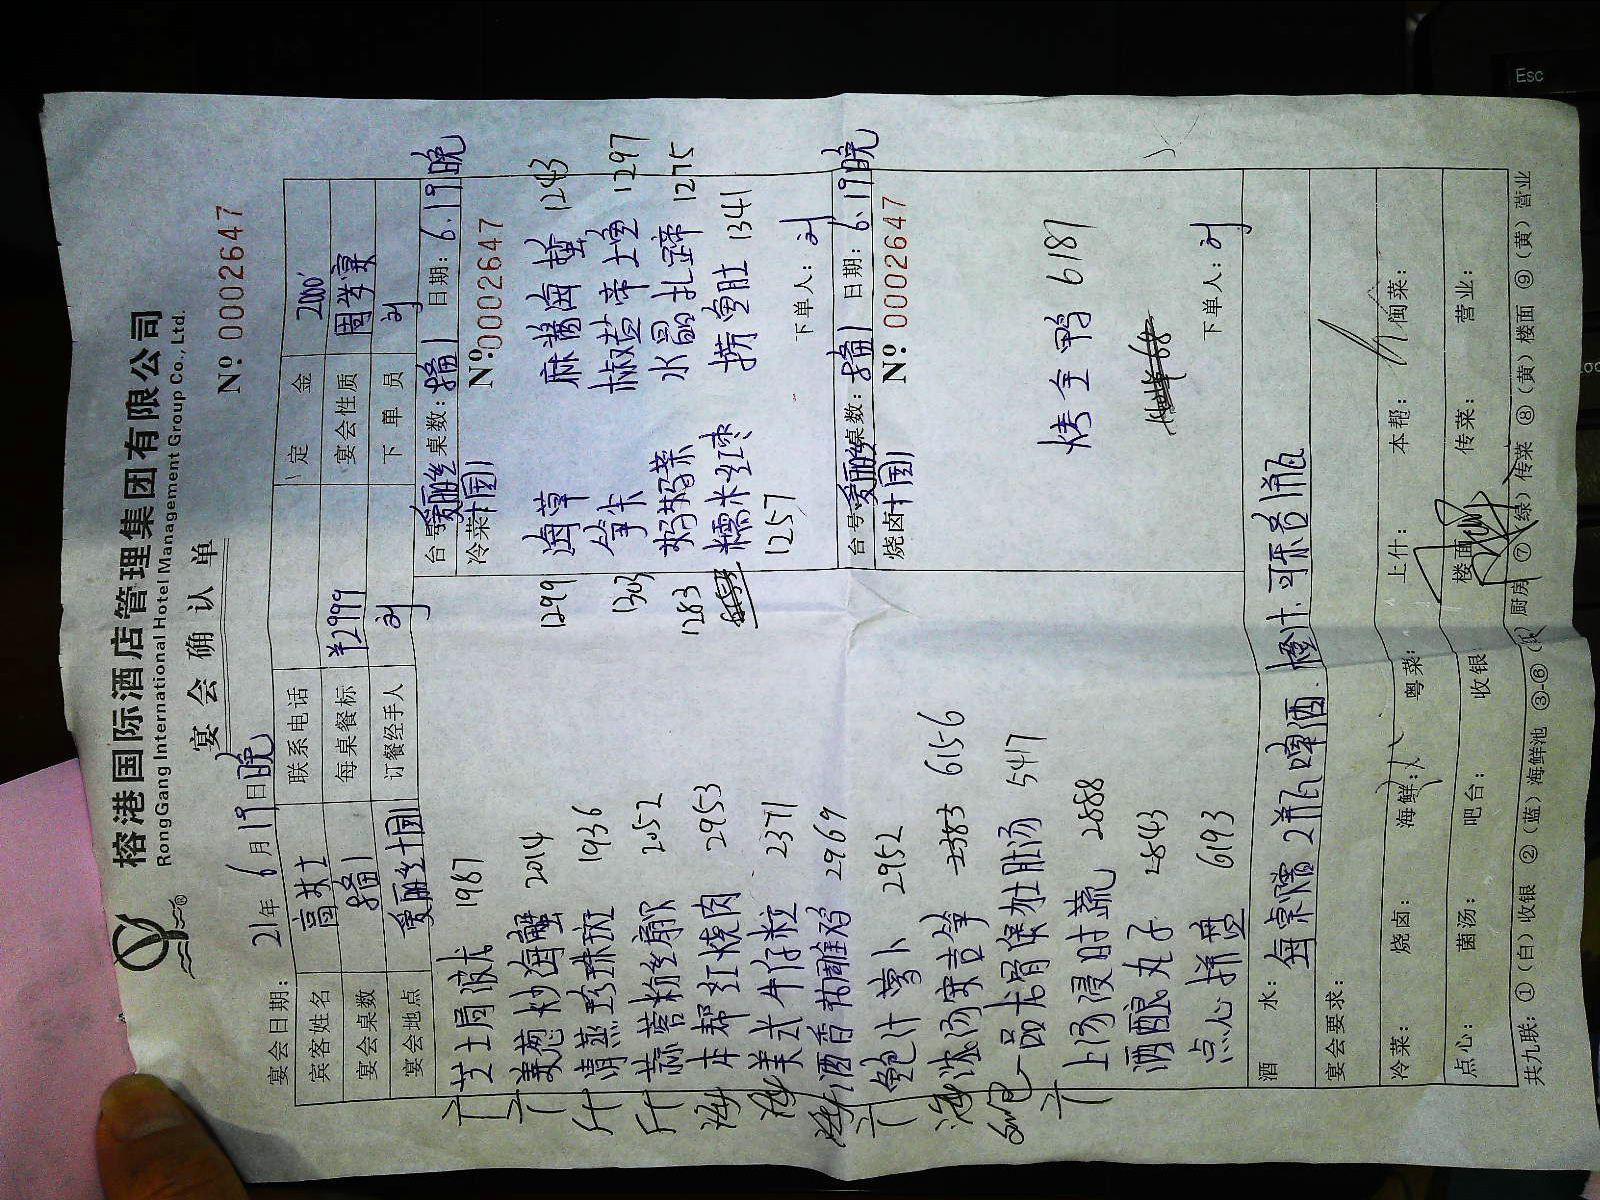 榕港国际酒店管理集团有限公司
RongGang International Hotel Management Group Co., Ltd.
宴会确认单
№ 0002647
宴会日期: 21年6月19日晚
定金 2000
宾客姓名 高女士 联系电话
宴会桌数 1 每桌餐标 ¥2999 宴会性质
宴会地点 爱丽丝十国1 订餐经手人 刘 下单员 刘
芝士焗波龙 1987
姜葱炒海蟹 2014
清蒸珍珠斑 1936
蒜蓉粉丝扇贝 2052
本帮红烧肉 2953
美式牛仔粒 2371
酒香 鸡 2969
鲍汁萝卜 2952
浓汤安吉笋 6156
一品龙骨 肚汤 5417
上汤浸时蔬 2888
酒酿丸子 2843
点心拼盘 6193
台号 爱丽丝 桌数: 1 日期: 6.19晚
冷菜 十国1 № 0002647
1299 海草 麻酱海蜇 1243
1303 笋 椒盐 1297
1283 妈妈菜 水晶扎蹄 1275
糯米红枣 捞鱼肚 1341
1257
下单人: 刘
台号 爱丽丝 桌数: 1 日期: 6.19晚
烧卤 十国1 № 0002647
烤全鸭 6187
下单人: 刘
酒水: 每桌赠2瓶啤酒. 橙汁.可乐各1瓶
宴会要求:
冷菜: 烧卤: 海鲜: 粤菜: 上什: 本帮: 闽菜:
点心: 菌汤: 吧台: 收银 楼面 传菜: 营业:
共九联: ①(白)收银 ②(蓝)海鲜池 ③-⑥ 厨房 ⑦(绿)传菜 ⑧(黄)楼面 ⑨(黄)营业
Esc